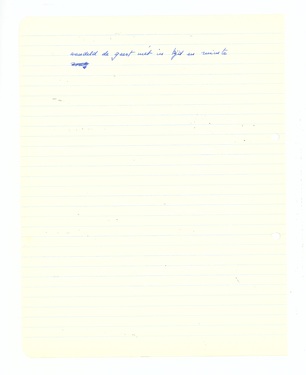 wandeld de geest niet in tijd en ruimte